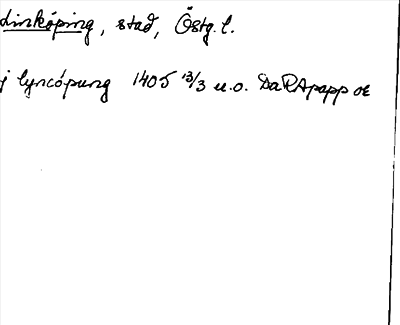 Linköping, stad, Östg.l.
j lyncópung 1405 13/3 u.o. DaRApapp oE